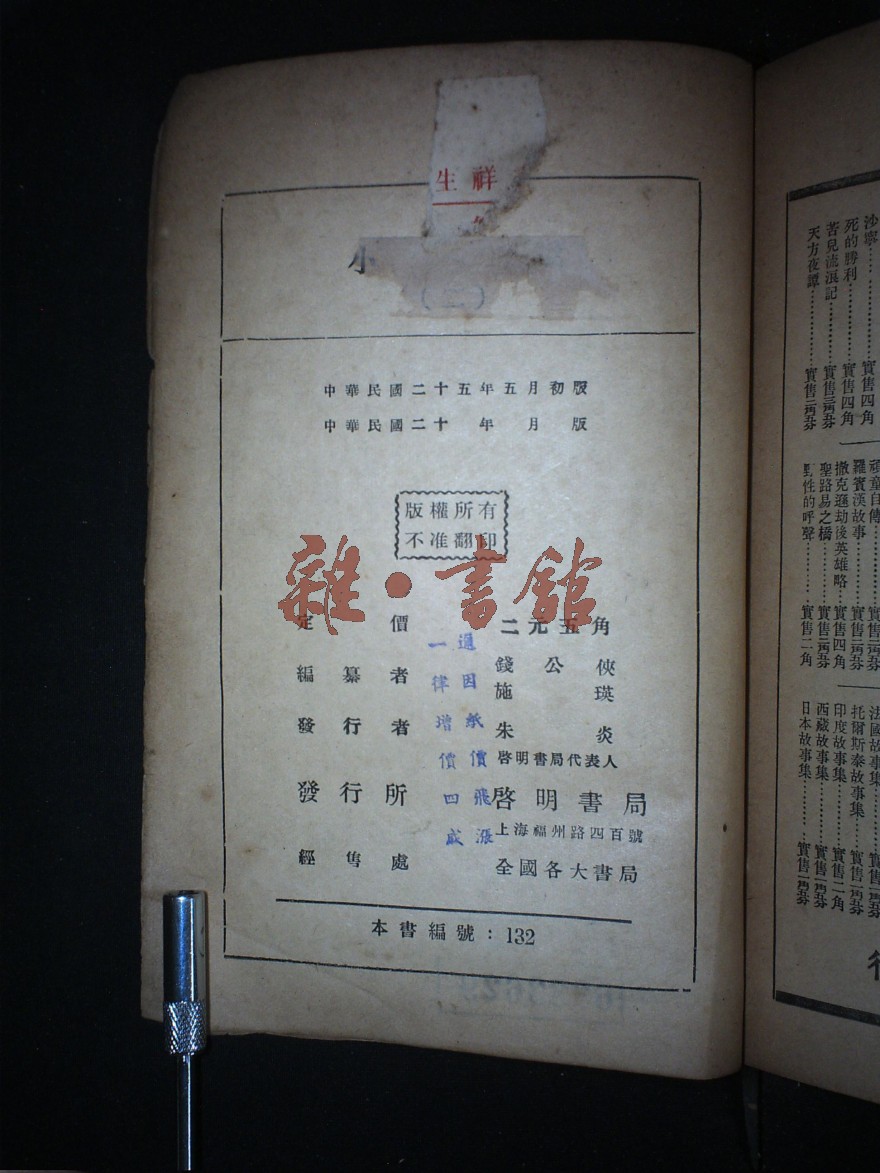 祥生
小
(二)
中華民國二十五年五月初版
中華民國二十 年 月 版
版權所有
不准翻印
雜·書館
定價 二元五角
編纂者 錢公俠
施瑛
發行者 朱炎
啓明書局代表人
發行所 啓明書局
上海福州路四百號
經售處 全國各大書局
邇因紙價飛漲
一律增價四成
本書編號：132
沙寧 實售四角
死的勝利 實售四角
苦兒流浪記
天方夜譚
頑童自傳
羅賓漢故事
撒克遜劫後英雄略 實售四角
聖路易之橋
野性的呼聲 實售二角
法國故事集
托爾斯泰故事集
印度故事集 實售二角
西藏故事集
日本故事集